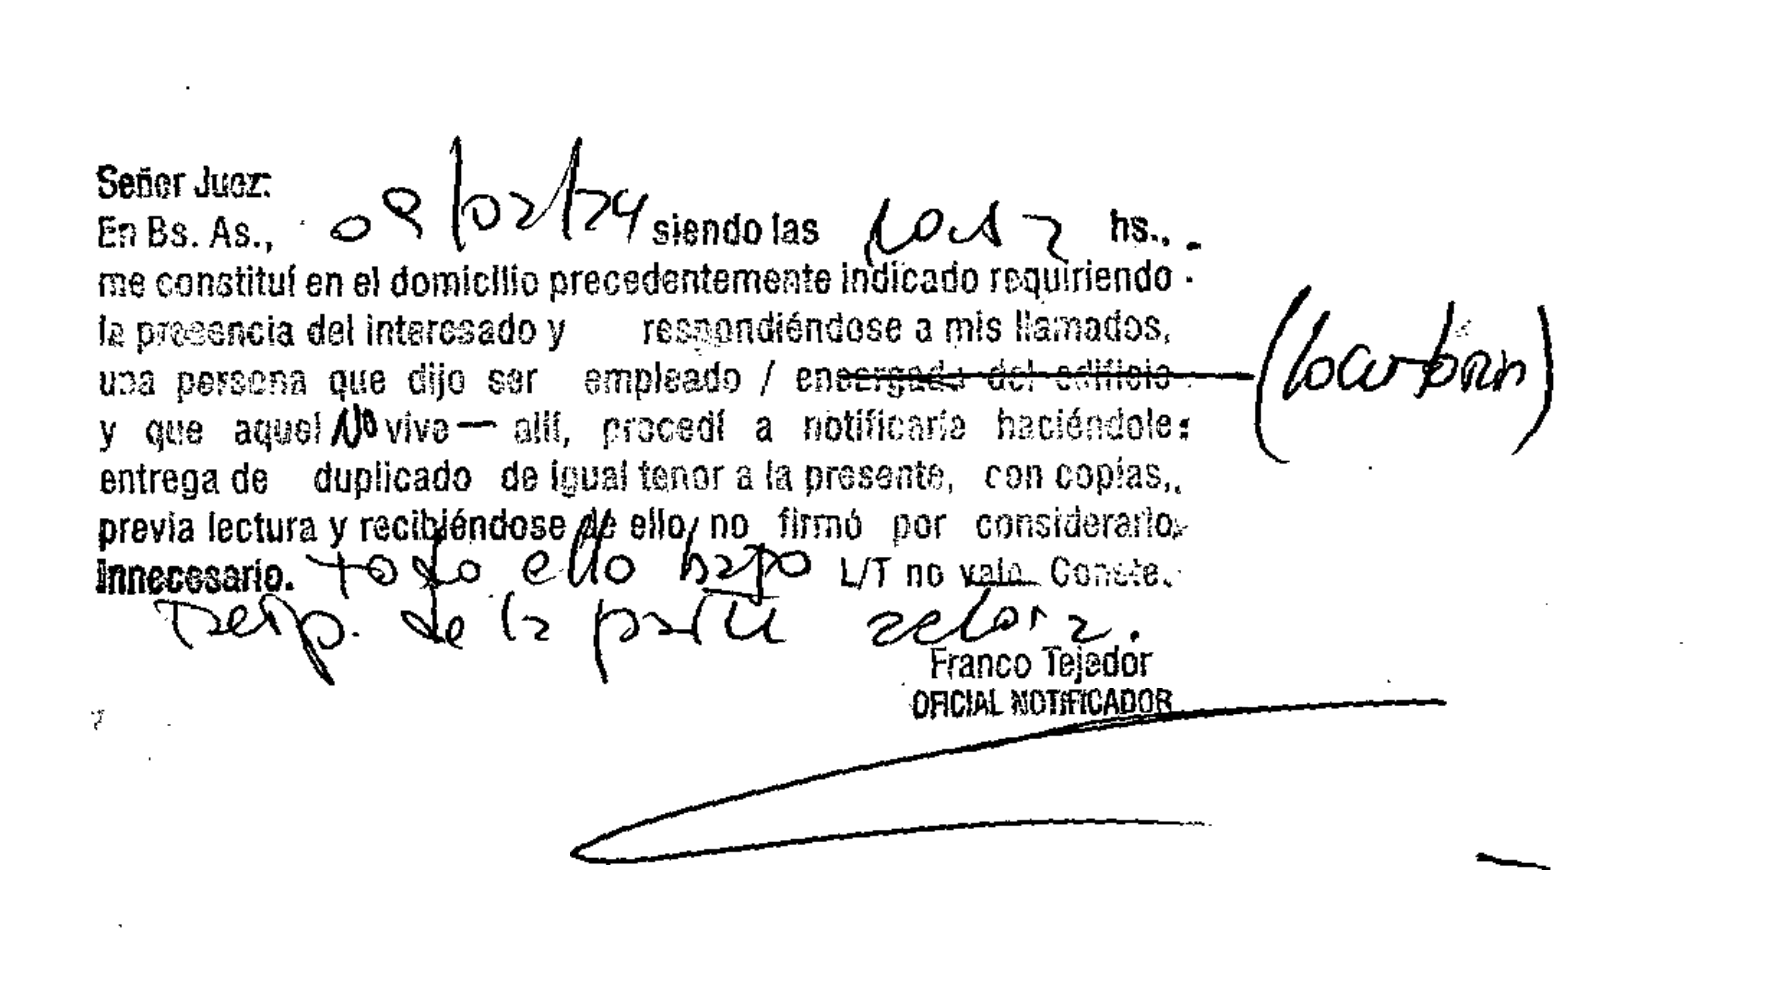 Señor Juez:
En Bs. As., 09/02/24 siendo las hs.,
me constituí en el domicilio precedentemente indicado requiriendo
la presencia del interesado y respondiéndose a mis llamados,
una persona que dijo ser empleado / encargado del edificio
y que aquel No vive — allí, procedí a notificarle haciéndole
entrega de duplicado de igual tenor a la presente, con copias,
previa lectura y recibiéndose de ello, no firmó por considerarlo
innecesario. todo ello bajo L/T no vale. Conste.
resp. de la parte actora.
Franco Tejedor
OFICIAL NOTIFICADOR